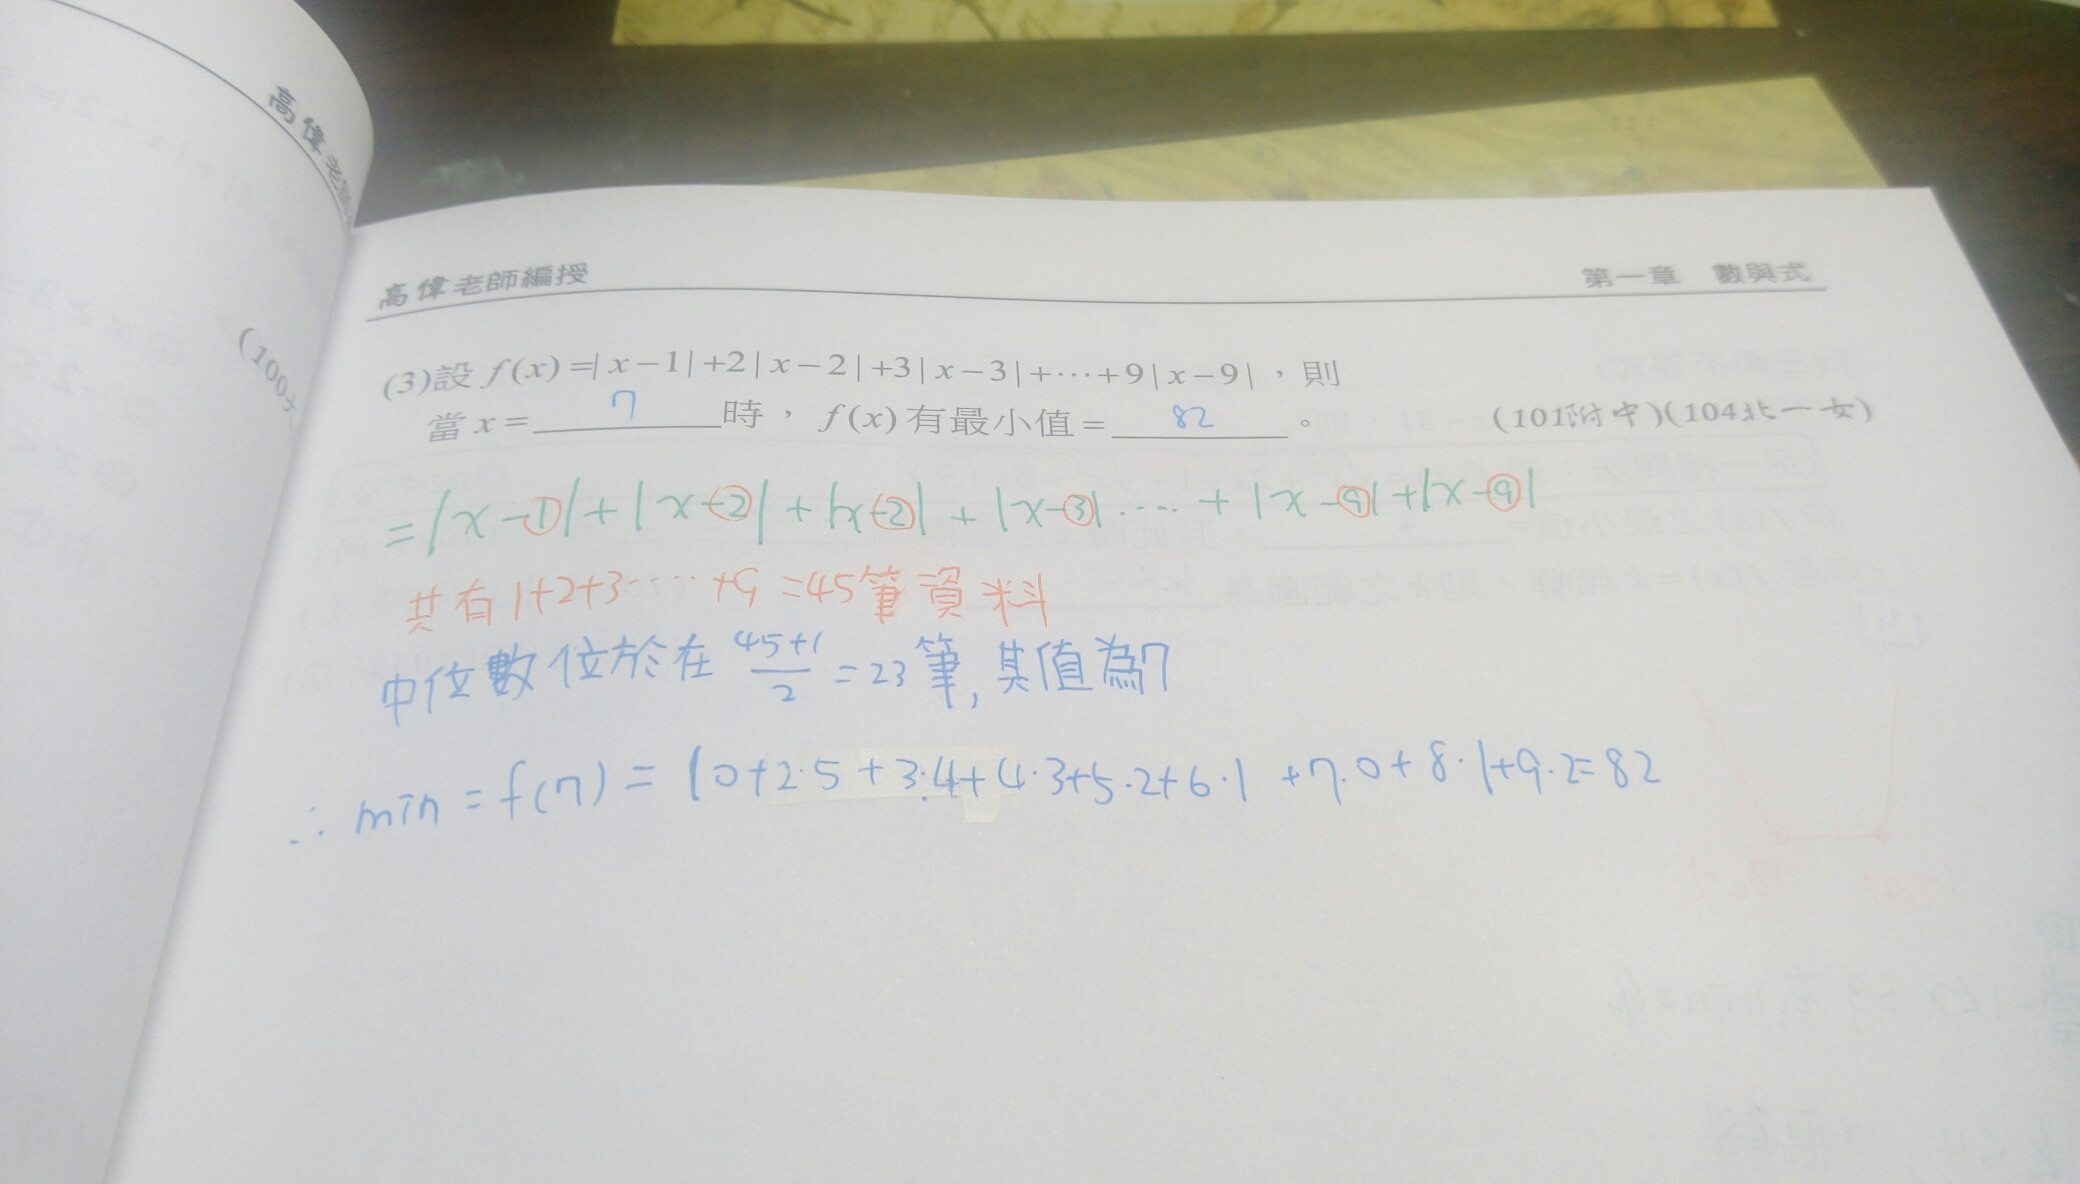 高偉老師
(100
高偉老師編授
第一章 數與式
(3)設 f(x)=|x-1|+2|x-2|+3|x-3|+⋯+9|x-9|,則
當 x= 7 時,f(x)有最小值= 82 。 (101附中)(104北一女)
=|x-1|+|x-2|+|x-2|+|x-3|....+|x-9|+|x-9|
共有1+2+3.....+9=45筆資料
中位數位於在 \frac{45+1}{2}=23筆,其值為7
∴min=f(7)=10+2·5+3·4+4·3+5·2+6·1+7·0+8·1+9·2=82